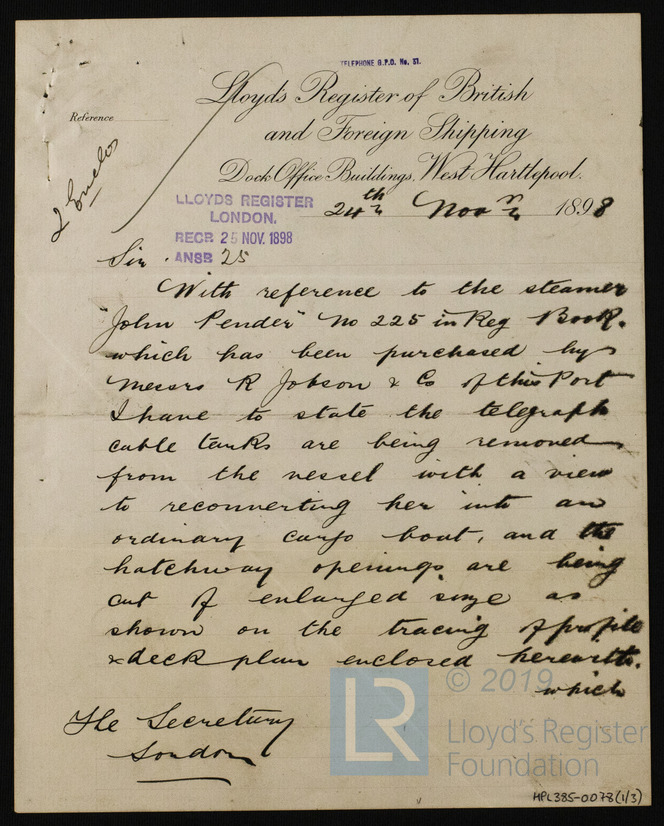 TELEPHONE G.P.O. No. 51.
Lloyds Register of British
Reference
and Foreign Shipping
Dock Office Buildings, West Hartlepool.
2 Enclos
LLOYDS REGISTER
LONDON.
24th Novr 1898
RECR 25 NOV. 1898
ANSR 25
Sir.
With reference to the steamer
"John Pender" No 225 in Reg Book.
which has been purchased by
Messrs R Jobson & Co of this Port
I have to state the telegraph
cable tanks are being removed
from the vessel with a view
to reconverting her into an
ordinary cargo boat, and the
hatchway openings are being
cut of enlarged size as
shown on the tracing of profile
& deck plan enclosed herewith.
which
The Secretary
London
© 2019
LR
Lloyd's Register
Foundation
HPL385-0078(1/3)